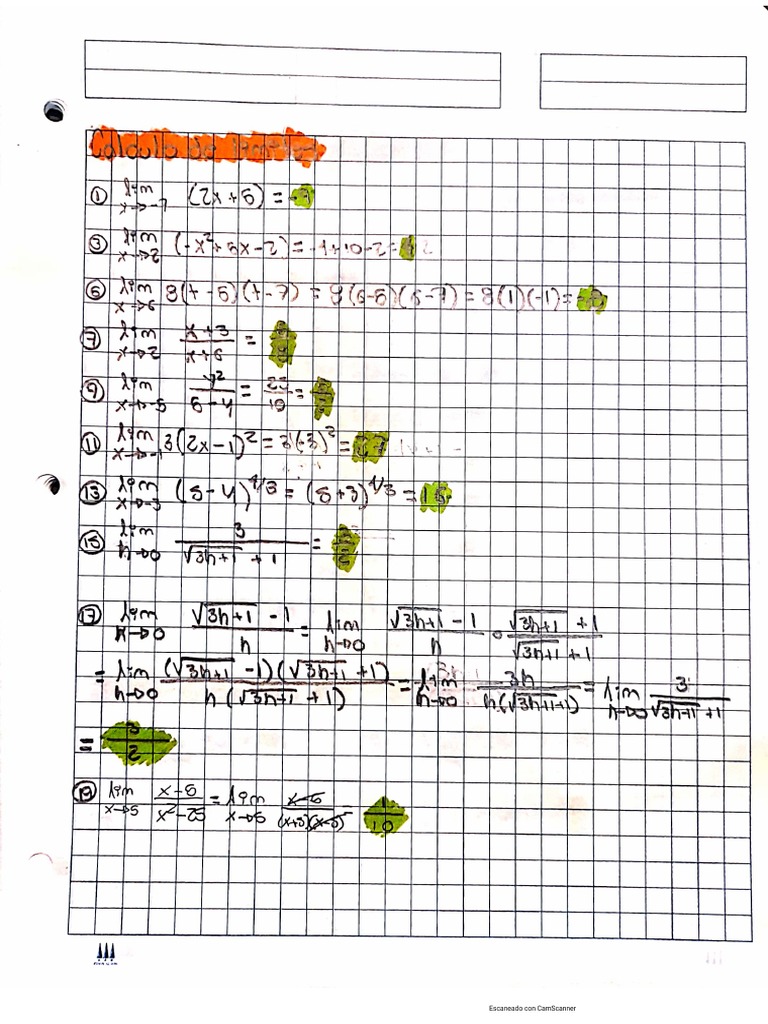 Calculo de limites
① lim x→-7 (2x + 5) = -9
③ lim x→2 (-x² + 5x - 2) = -4+10-2 =
⑤ lim x→6 8(t-5)(t-7) = 8(6-5)(6-7) = 8(1)(-1) = -8
⑦ lim x→2 x+3/x+6 =
⑨ lim x→-5 y²/5-y = 25/10 =
⑪ lim x→-1 3(2x-1)² = 3(-3)² = 27
⑬ lim x→-3 (5-y)^4/3 = (5+3)^4/3 = 16
⑮ lim h→0 3/√3h+1 + 1 =
⑰ lim h→0 √3h+1 - 1/h = lim h→0 √3h+1 - 1/h · √3h+1 + 1/√3h+1 + 1
= lim h→0 (√3h+1 - 1)(√3h+1 + 1)/h(√3h+1 + 1) = lim h→0 3h/h(√3h+1+1) = lim h→0 3/√3h+1 + 1
= 3/2
⑲ lim x→5 x-5/x²-25 = lim x→5 x-5/(x+5)(x-5) = 1/10
Escaneado con CamScanner